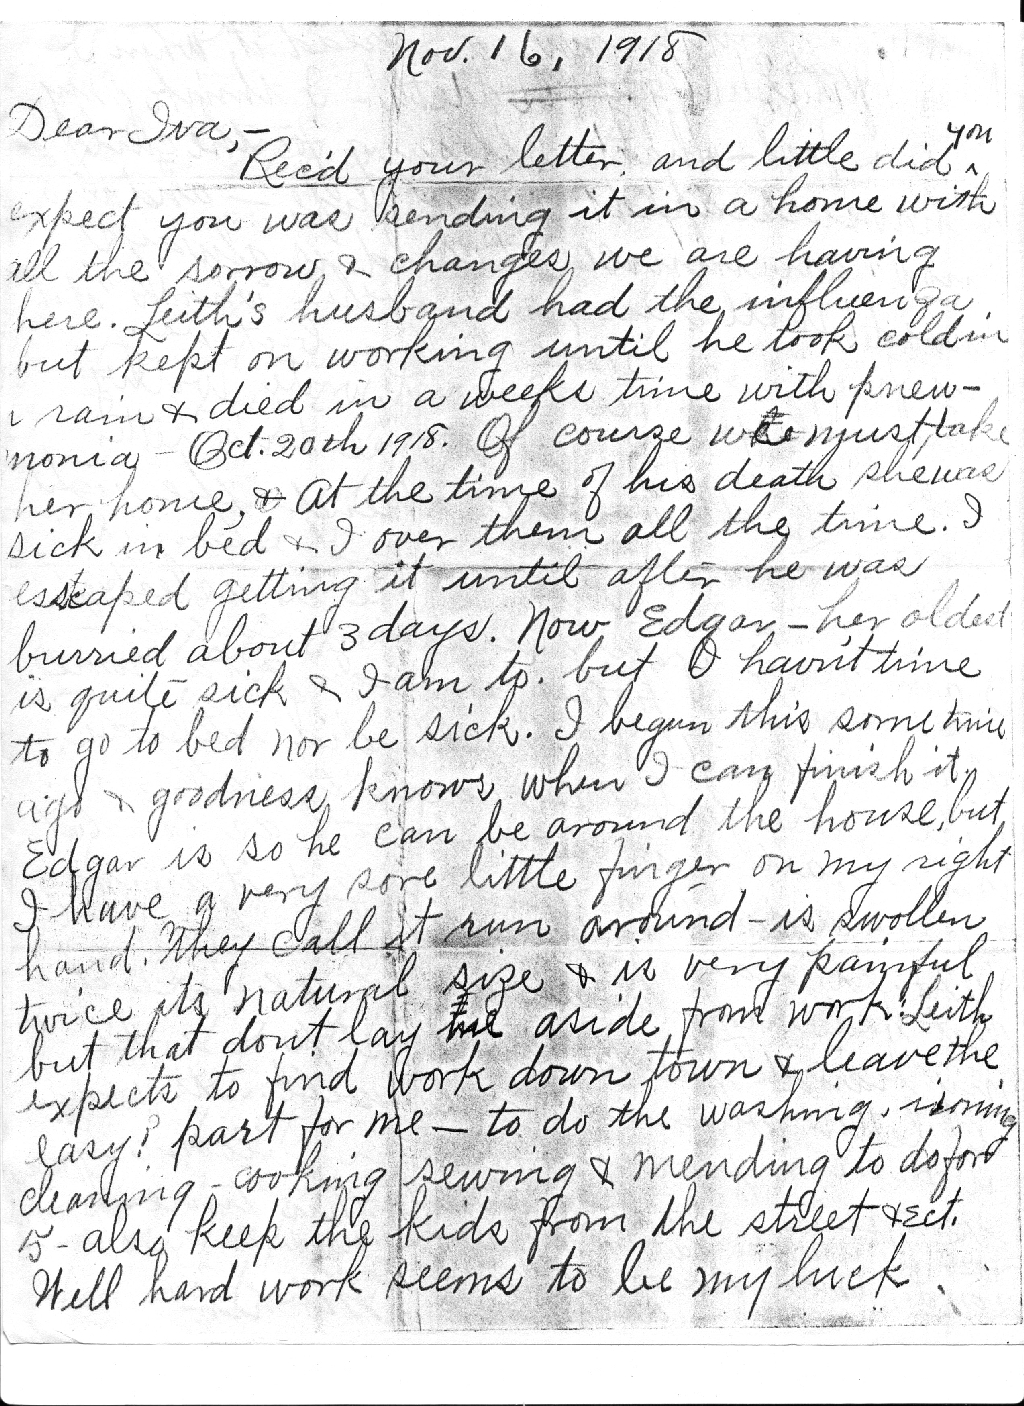 Nov. 16, 1918
Dear Iva,-
Rec'd your letter and little did you
expect you was sending it in a home with
all the sorrow & changes we are having
here. Leith's husband had the influenza
but kept on working until he took cold in
rain & died in a weeks time with pnew-
monia - Oct. 20th 1918. Of course we must take
her home, & At the time of his death she was
sick in bed & I over them all the time. I
escaped getting it until after he was
burried about 3 days. Now Edgar - her oldest
is quite sick & I am to. but I havn't time
to go to bed nor be sick. I begun this some time
ago & goodness knows when I can finish it.
Edgar is so he can be around the house, but
I have a very sore little finger on my right
hand. They call it run around - is swollen
twice its natural size & is very painful
but that dont lay me aside from work. Leith
expects to find work down town & leave the
easy? part for me - to do the washing, ironing
cleaning - cooking sewing & mending to do for
5 - also keep the kids from the street & Ect.
Well hard work seems to be my luck.